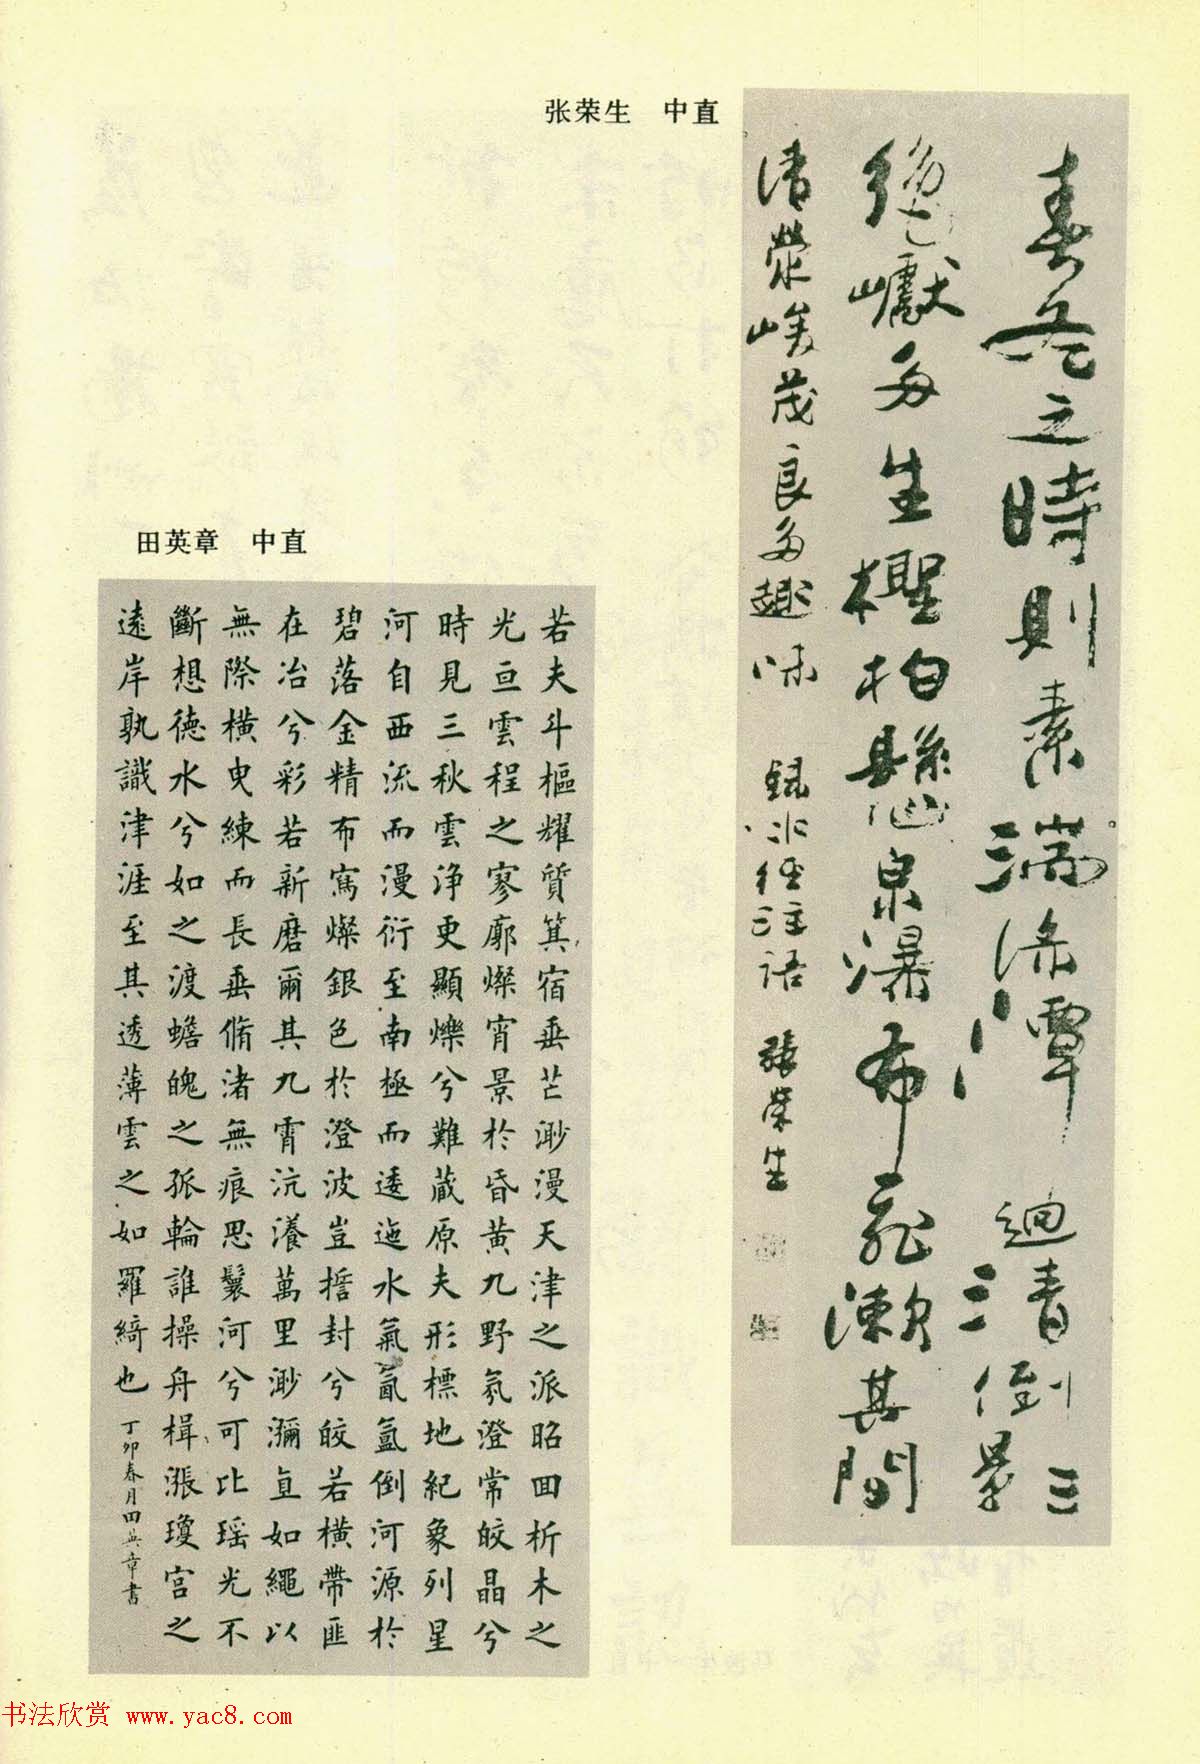 张荣生　中直
春冬之時則素湍淥潭迴清倒景三
絕巘多生檉柏懸泉瀑布飛漱其間
清榮峻茂良多趣味　錄水经注语　張榮生
田英章　中直
若夫斗樞耀質箕宿垂芒渺漫天津之派昭回析木之
光亘雲程之寥廓燦宵景於昏黃九野氛澄常皎晶兮
時見三秋雲浄更顯爍兮難蔵原夫形標地紀象列星
河自西流而漫衍至南極而逶迤水氣氤氳倒河源於
碧落金精布寫燦銀色於澄波豈擔封兮皎若横帶匪
在冶兮彩若新磨爾其九霄沆瀁萬里渺瀰直如繩以
無際横曳練而長垂脩渚無痕思鬟河兮可比瑶光不
斷想德水兮如之渡蟾魄之孤輪誰操舟楫漲瓊宫之
遠岸孰識津涯至其透薄雲之如羅綺也　丁卯春月田英章書
书法欣赏 www.yac8.com